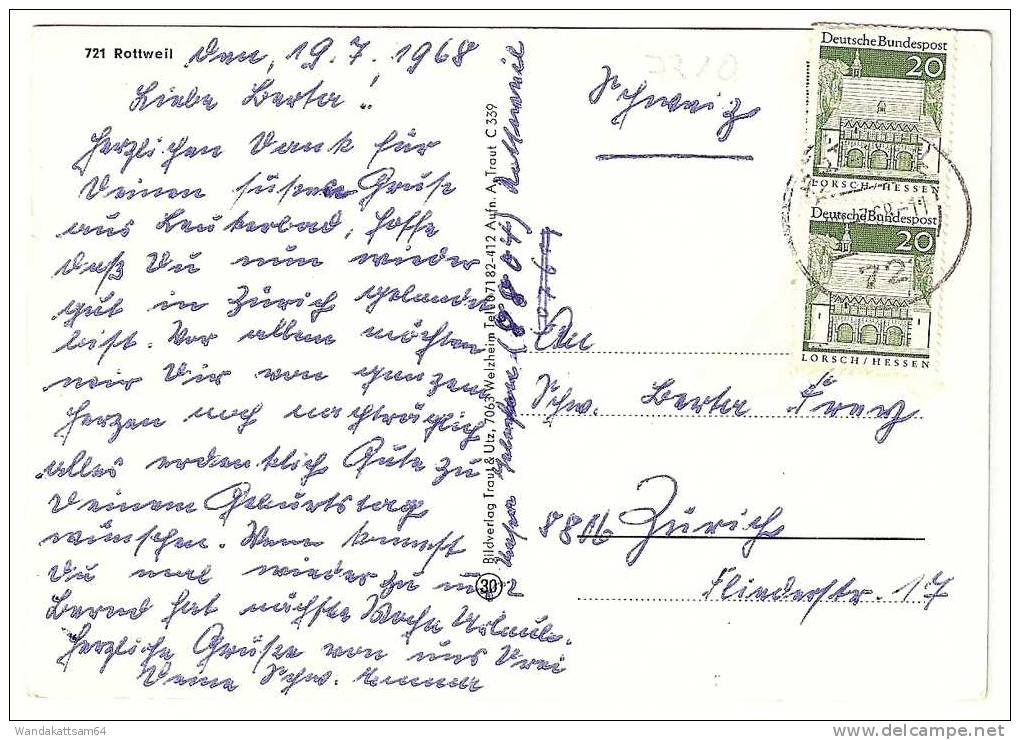 721 Rottweil den, 19.7.1968
Liebe Berta!
Herzlichen Dank für
Deinen süßen Gruß
aus Leukerbad, hoffe
daß Du nun wieder
gut in Zürich gelandet
bist. Vor allem möchten
wir Dir von ganzem
Herzen noch nachträglich
alles erdenklich Gute zu
Deinem Geburtstag
wünschen. Wann kommst
Du mal wieder zu uns?
Bernd hat nächste Woche Urlaub.
Herzliche Grüße von uns Drei
Deine Schw.
Unser Telefon (0741) Rottweil
Bildverlag Traut & Utz, 7063 Welzheim Tel. 07182-412 Aufn. A. Traut C 339
30
Schweiz
An
Schw. Berta Frey
8816 Zürich
Fliederstr. 17
Deutsche Bundespost
20
LORSCH/HESSEN
Deutsche Bundespost
20
LORSCH/HESSEN
72
Wandakattsam64
delcampe.net